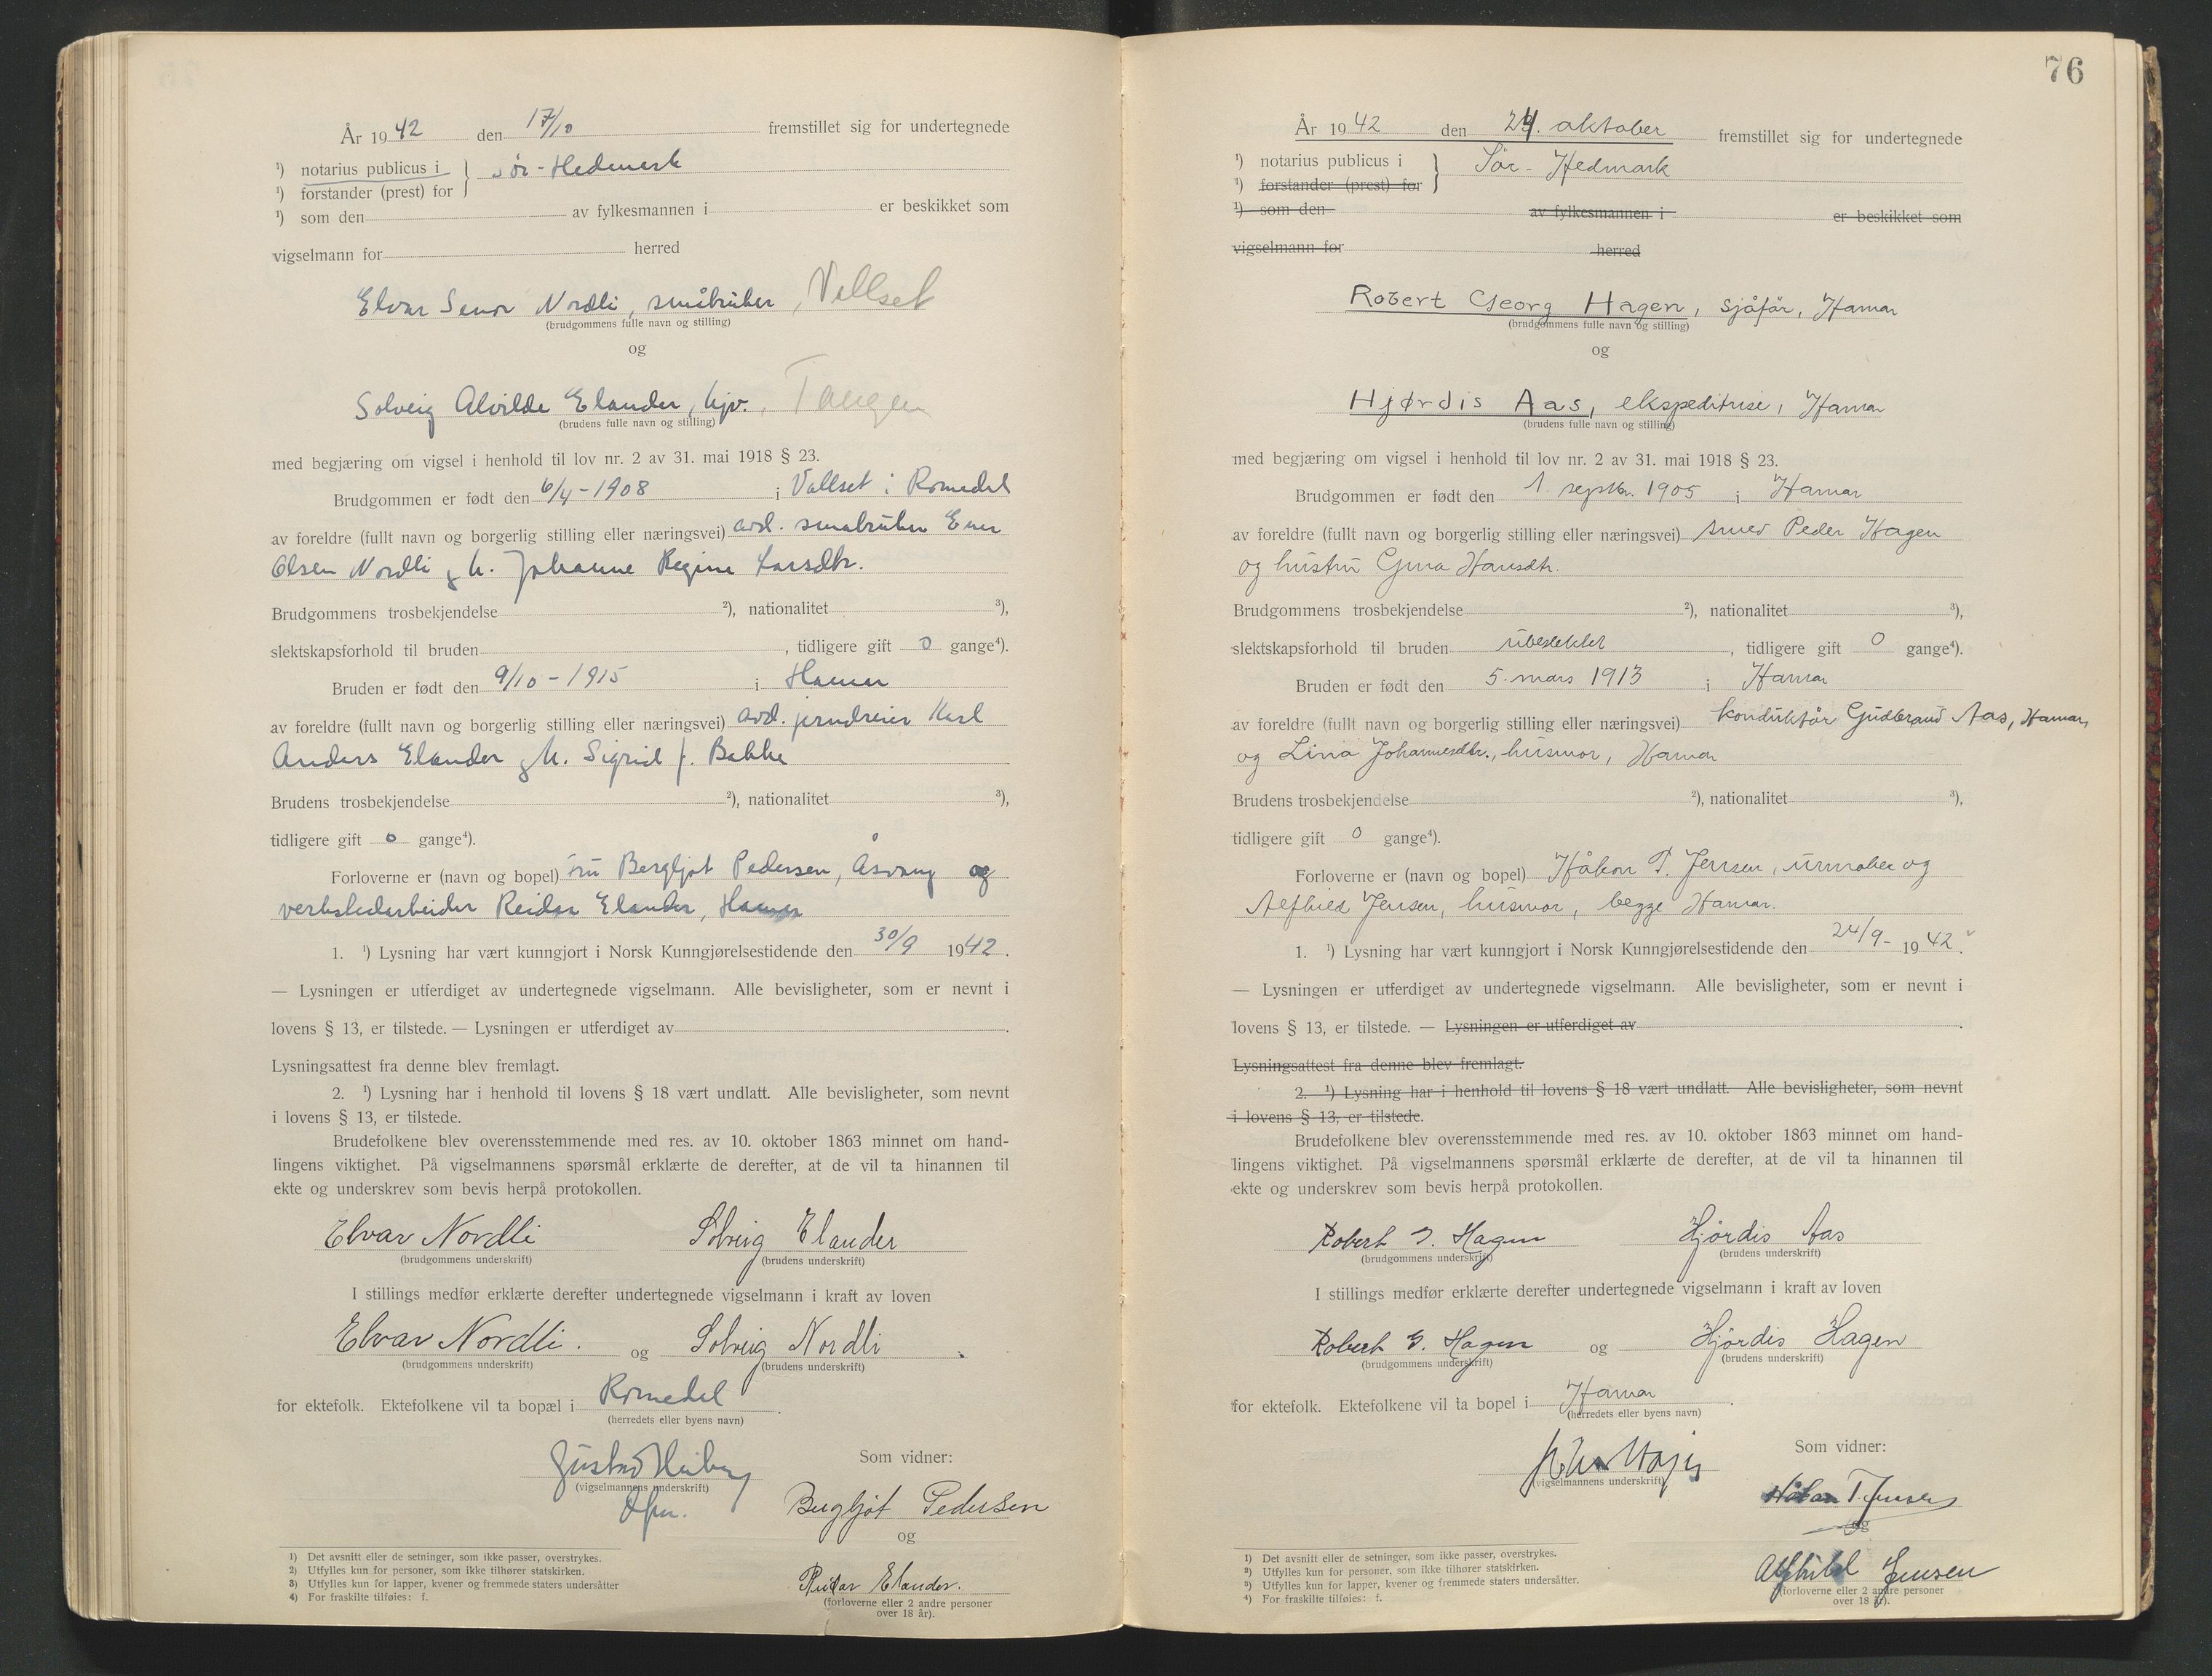 År 1942 den 17/10 fremstillet sig for undertegnede
¹) notarius publicus i
Sør-Hedemark
¹) forstander (prest) for
¹) som den av fylkesmannen i er beskikket som
vigselmann for herred
Elvar Nordli, småbruker, Vallset
(brudgommens fulle navn og stilling)
og
Solveig Alvilde Elander, hjv., Tangen
(brudens fulle navn og stilling)
med begjæring om vigsel i henhold til lov nr. 2 av 31. mai 1918 § 23.
Brudgommen er født den 6/4-1908 i Vallset i Romedal
av foreldre (fullt navn og borgerlig stilling eller næringsvei) avd. småbruker
Olsen Nordli og h. Johanne Regine Larsdtr.
Brudgommens trosbekjendelse ²), nationalitet ³),
slektskapsforhold til bruden , tidligere gift 0 gange⁴).
Bruden er født den 9/10-1915 i Hamar
av foreldre (fullt navn og borgerlig stilling eller næringsvei) avd. Karl
Anders Elander og h. Sigrid f. Bakke
Brudens trosbekjendelse ²), nationalitet ³),
tidligere gift 0 gange⁴).
Forloverne er (navn og bopel) fru Bergljot Pedersen, Åsvang og
verkstedarbeider Reidar Elander, Hamar
1. ¹) Lysning har vært kunngjort i Norsk Kunngjørelsestidende den 30/9 1942.
— Lysningen er utferdiget av undertegnede vigselmann. Alle bevisligheter, som er nevnt i
lovens § 13, er tilstede. — Lysningen er utferdiget av .
Lysningsattest fra denne blev fremlagt.
2. ¹) Lysning har i henhold til lovens § 18 vært undlatt. Alle bevisligheter, som nevnt
i lovens § 13, er tilstede.
Brudefolkene blev overensstemmende med res. av 10. oktober 1863 minnet om hand-
lingens viktighet. På vigselmannens spørsmål erklærte de derefter, at de vil ta hinannen til
ekte og underskrev som bevis herpå protokollen.
Elvar Nordli Solveig Elander
(brudgommens underskrift) (brudens underskrift)
I stillings medfør erklærte derefter undertegnede vigselmann i kraft av loven
Elvar Nordli. og Solveig Nordli
(brudgommens underskrift) (brudens underskrift)
for ektefolk. Ektefolkene vil ta bopæl i Romedal.
(herredets eller byens navn)
Gustav Heiberg
(vigselmannens underskrift)
Som vidner:
Bergljot Pedersen
og
Reidar Elander.
(forloverne eller 2 andre personer
over 18 år).
1) Det avsnitt eller de setninger, som ikke passer, overstrykes.
2) Utfylles kun for personer, som ikke tilhører statskirken.
3) Utfylles kun for lapper, kvener og fremmede staters undersåtter
4) For fraskilte tilføies: f.
76
År 1942 den 24. oktober fremstillet sig for undertegnede
¹) notarius publicus i
Sør-Hedmark
¹) forstander (prest) for
¹) som den av fylkesmannen i er beskikket som
vigselmann for herred
Robert Georg Hagen, sjåfør, Hamar
(brudgommens fulle navn og stilling)
og
Hjørdis Aas, ekspeditrise, Hamar
(brudens fulle navn og stilling)
med begjæring om vigsel i henhold til lov nr. 2 av 31. mai 1918 § 23.
Brudgommen er født den 1. septbr. 1905 i Hamar
av foreldre (fullt navn og borgerlig stilling eller næringsvei) smed Peder Hagen
og hustru Gina Hansdtr.
Brudgommens trosbekjendelse ²), nationalitet ³),
slektskapsforhold til bruden ubeslektet , tidligere gift 0 gange⁴).
Bruden er født den 5. mars 1913 i Hamar
av foreldre (fullt navn og borgerlig stilling eller næringsvei) konduktør Gudbrand Aas, Hamar,
og Lina Johannesdtr., husmor, Hamar
Brudens trosbekjendelse ²), nationalitet ³),
tidligere gift 0 gange⁴).
Forloverne er (navn og bopel) Håkon T. Jensen, urmaker og
Alfhild Jensen, husmor, begge Hamar.
1. ¹) Lysning har vært kunngjort i Norsk Kunngjørelsestidende den 24/9- 1942.
— Lysningen er utferdiget av undertegnede vigselmann. Alle bevisligheter, som er nevnt i
lovens § 13, er tilstede. — Lysningen er utferdiget av .
Lysningsattest fra denne blev fremlagt.
2. ¹) Lysning har i henhold til lovens § 18 vært undlatt. Alle bevisligheter, som nevnt
i lovens § 13, er tilstede.
Brudefolkene blev overensstemmende med res. av 10. oktober 1863 minnet om hand-
lingens viktighet. På vigselmannens spørsmål erklærte de derefter, at de vil ta hinannen til
ekte og underskrev som bevis herpå protokollen.
Robert G. Hagen Hjørdis Aas
(brudgommens underskrift) (brudens underskrift)
I stillings medfør erklærte derefter undertegnede vigselmann i kraft av loven
Robert G. Hagen og Hjørdis Hagen
(brudgommens underskrift) (brudens underskrift)
for ektefolk. Ektefolkene vil ta bopel i Hamar.
(herredets eller byens navn)
(vigselmannens underskrift)
Som vidner:
Håkon T. Jensen
og
Alfhild Jensen
(forloverne eller 2 andre personer
over 18 år).
1) Det avsnitt eller de setninger, som ikke passer, overstrykes.
2) Utfylles kun for personer, som ikke tilhører statskirken.
3) Utfylles kun for lapper, kvener og fremmede staters undersåtter.
4) For fraskilte tilføies: f.